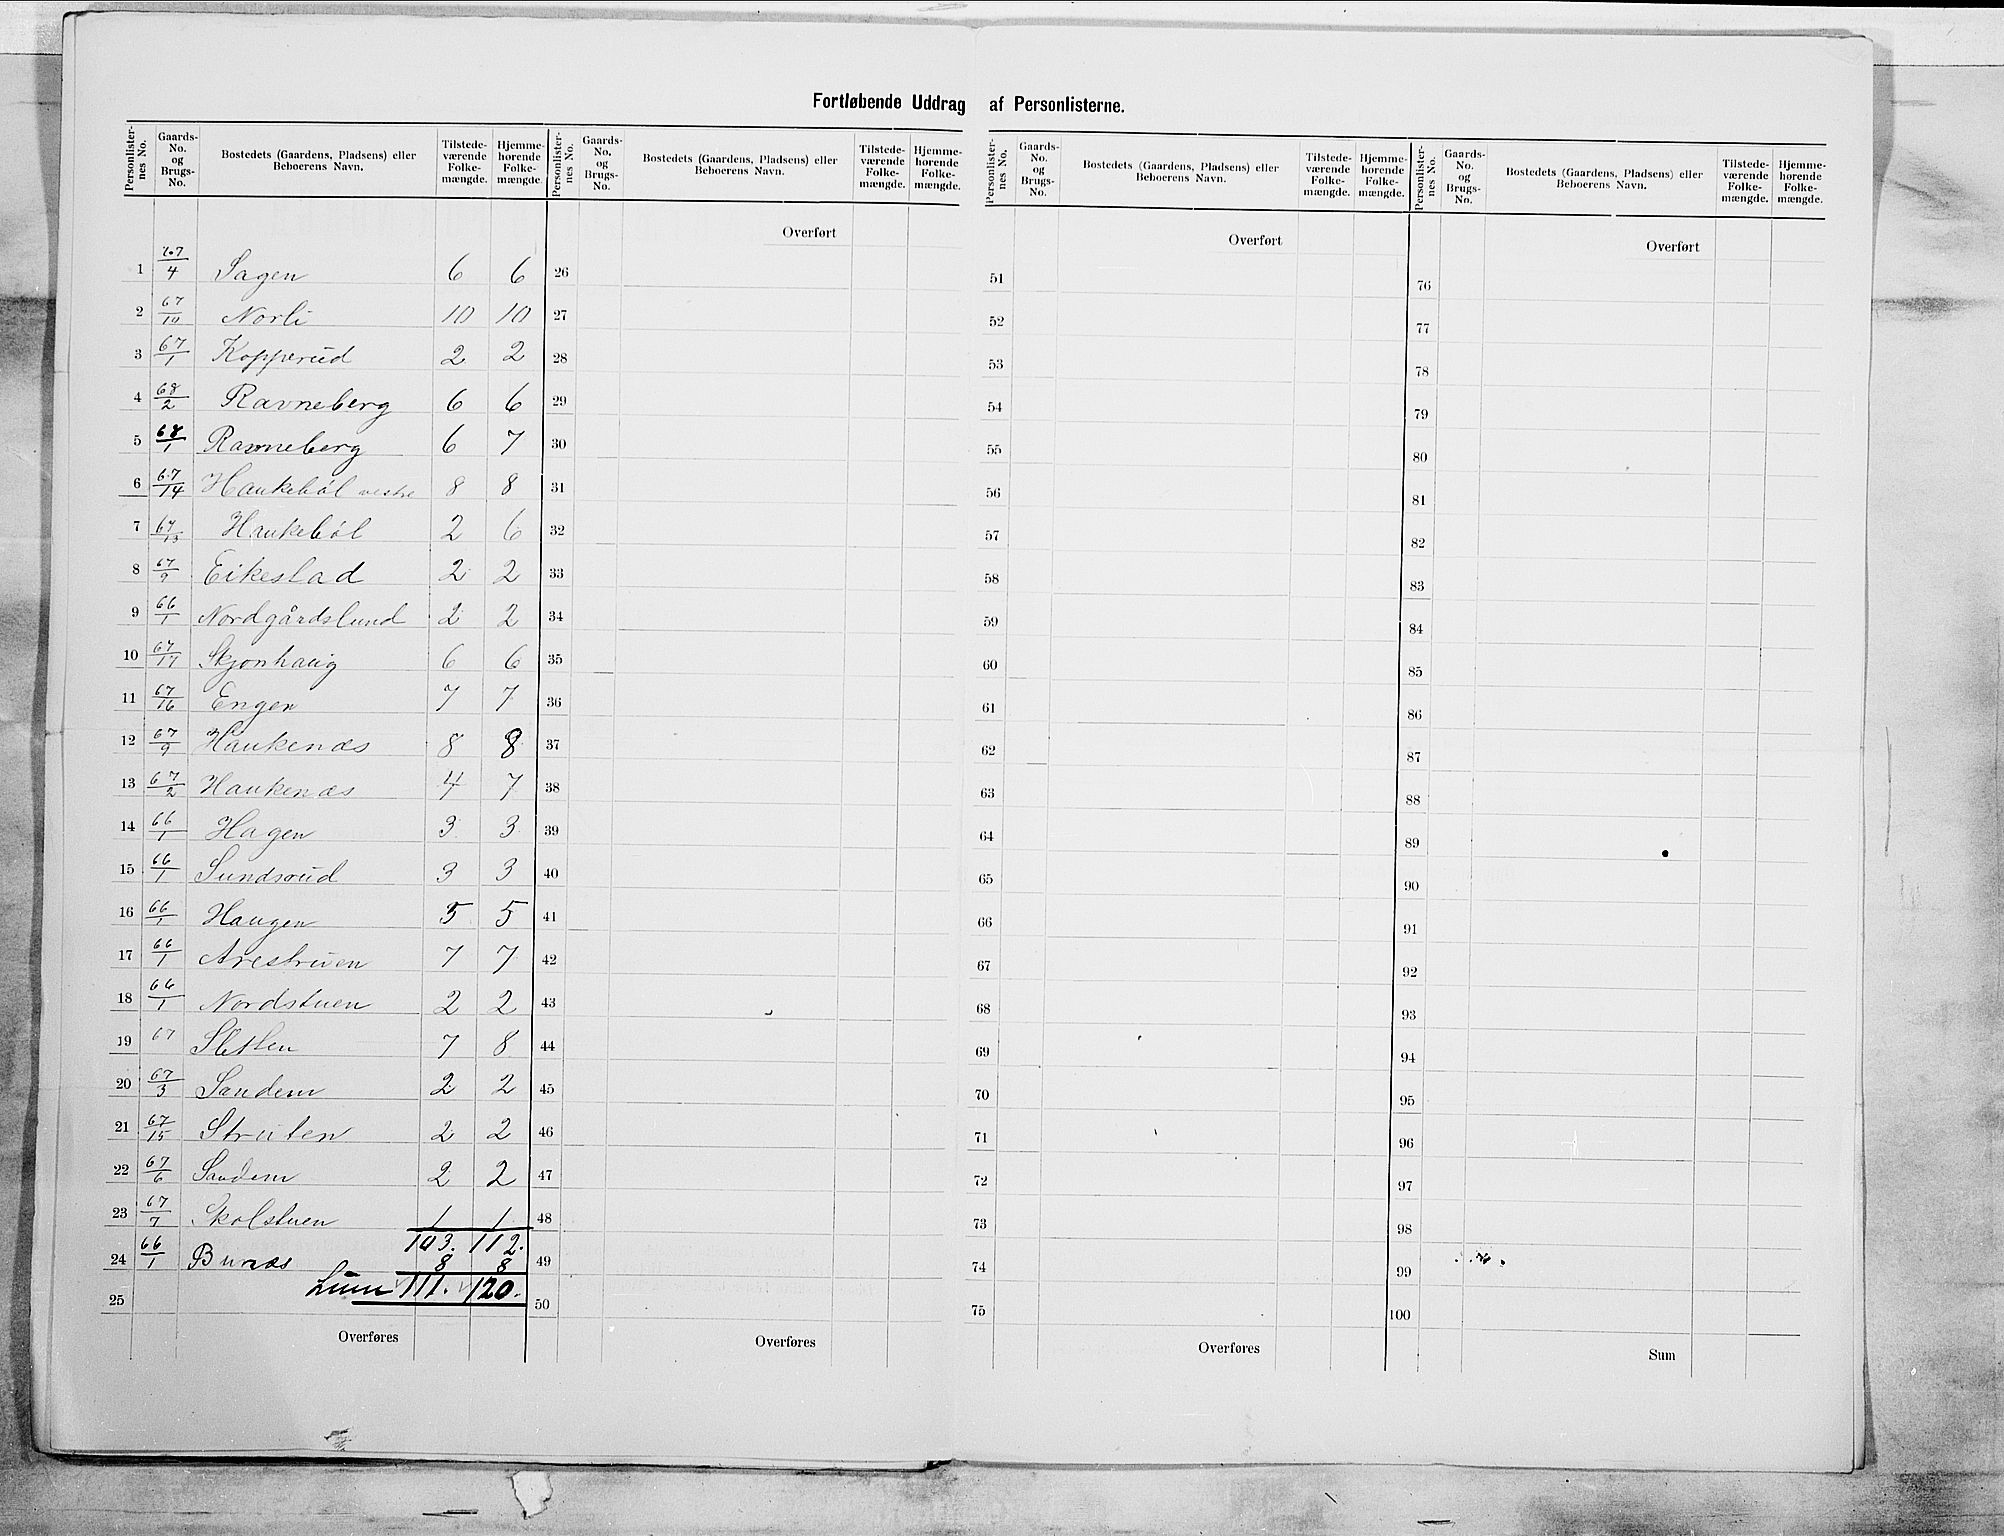 Fortløbende Uddrag af Personlisterne.
Personlister-nes No. | Gaards-No. og Brugs-No. | Bostedets (Gaardens, Pladsens) eller Beboerens Navn. | Tilstede-værende Folke-mængde. | Hjemme-hørende Folke-mængde.
1 67/4 Sagen 6 6
2 67/10 Norli 10 10
3 67/1 Kopperud 2 2
4 68/2 Ravneberg 6 6
5 68/1 Ravneberg 6 7
6 67/14 Haukebøl vestre 8 8
7 67/13 Haukebøl 2 6
8 67/9 Eikeslad 2 2
9 66/1 Nordgårdslund 2 2
10 67/17 Skjønhaug 6 6
11 67/16 Engen 7 7
12 67/9 Haukenæs 8 8
13 67/2 Haukenæs 4 7
14 66/1 Hagen 3 3
15 66/1 Sundsrud 3 3
16 66/1 Haugen 5 5
17 66/1 Arestuen 7 7
18 66/1 Nordstuen 2 2
19 67 Sletten 7 8
20 67/3 Sandem 2 2
21 67/15 Struten 2 2
22 67/6 Sandem 2 2
23 67/7 Skolstuen 1 1
103. 112.
24 66/1 Bunæs 8 8
25 Sum 111. 120.
Overføres
Personlister-nes No. | Gaards-No. og Brugs-No. | Bostedets (Gaardens, Pladsens) eller Beboerens Navn. | Tilstede-værende Folke-mængde. | Hjemme-hørende Folke-mængde.
Overført
26
27
28
29
30
31
32
33
34
35
36
37
38
39
40
41
42
43
44
45
46
47
48
49
50
Overføres
Personlister-nes No. | Gaards-No. og Brugs-No. | Bostedets (Gaardens, Pladsens) eller Beboerens Navn. | Tilstede-værende Folke-mængde. | Hjemme-hørende Folke-mængde.
Overført
51
52
53
54
55
56
57
58
59
60
61
62
63
64
65
66
67
68
69
70
71
72
73
74
75
Overføres
Personlister-nes No. | Gaards-No. og Brugs-No. | Bostedets (Gaardens, Pladsens) eller Beboerens Navn. | Tilstede-værende Folke-mængde. | Hjemme-hørende Folke-mængde.
Overført
76
77
78
79
80
81
82
83
84
85
86
87
88
89
90
91
92
93
94
95
96
97
98
99
100
Sum